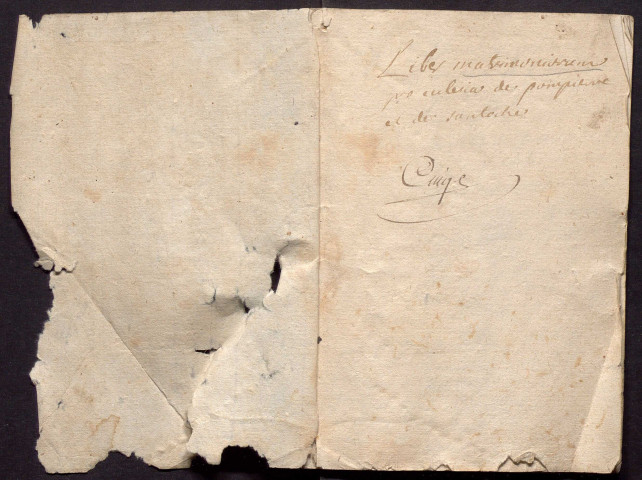 Liber matrimoniorum
pro eclesia de pompierre
et de santoche